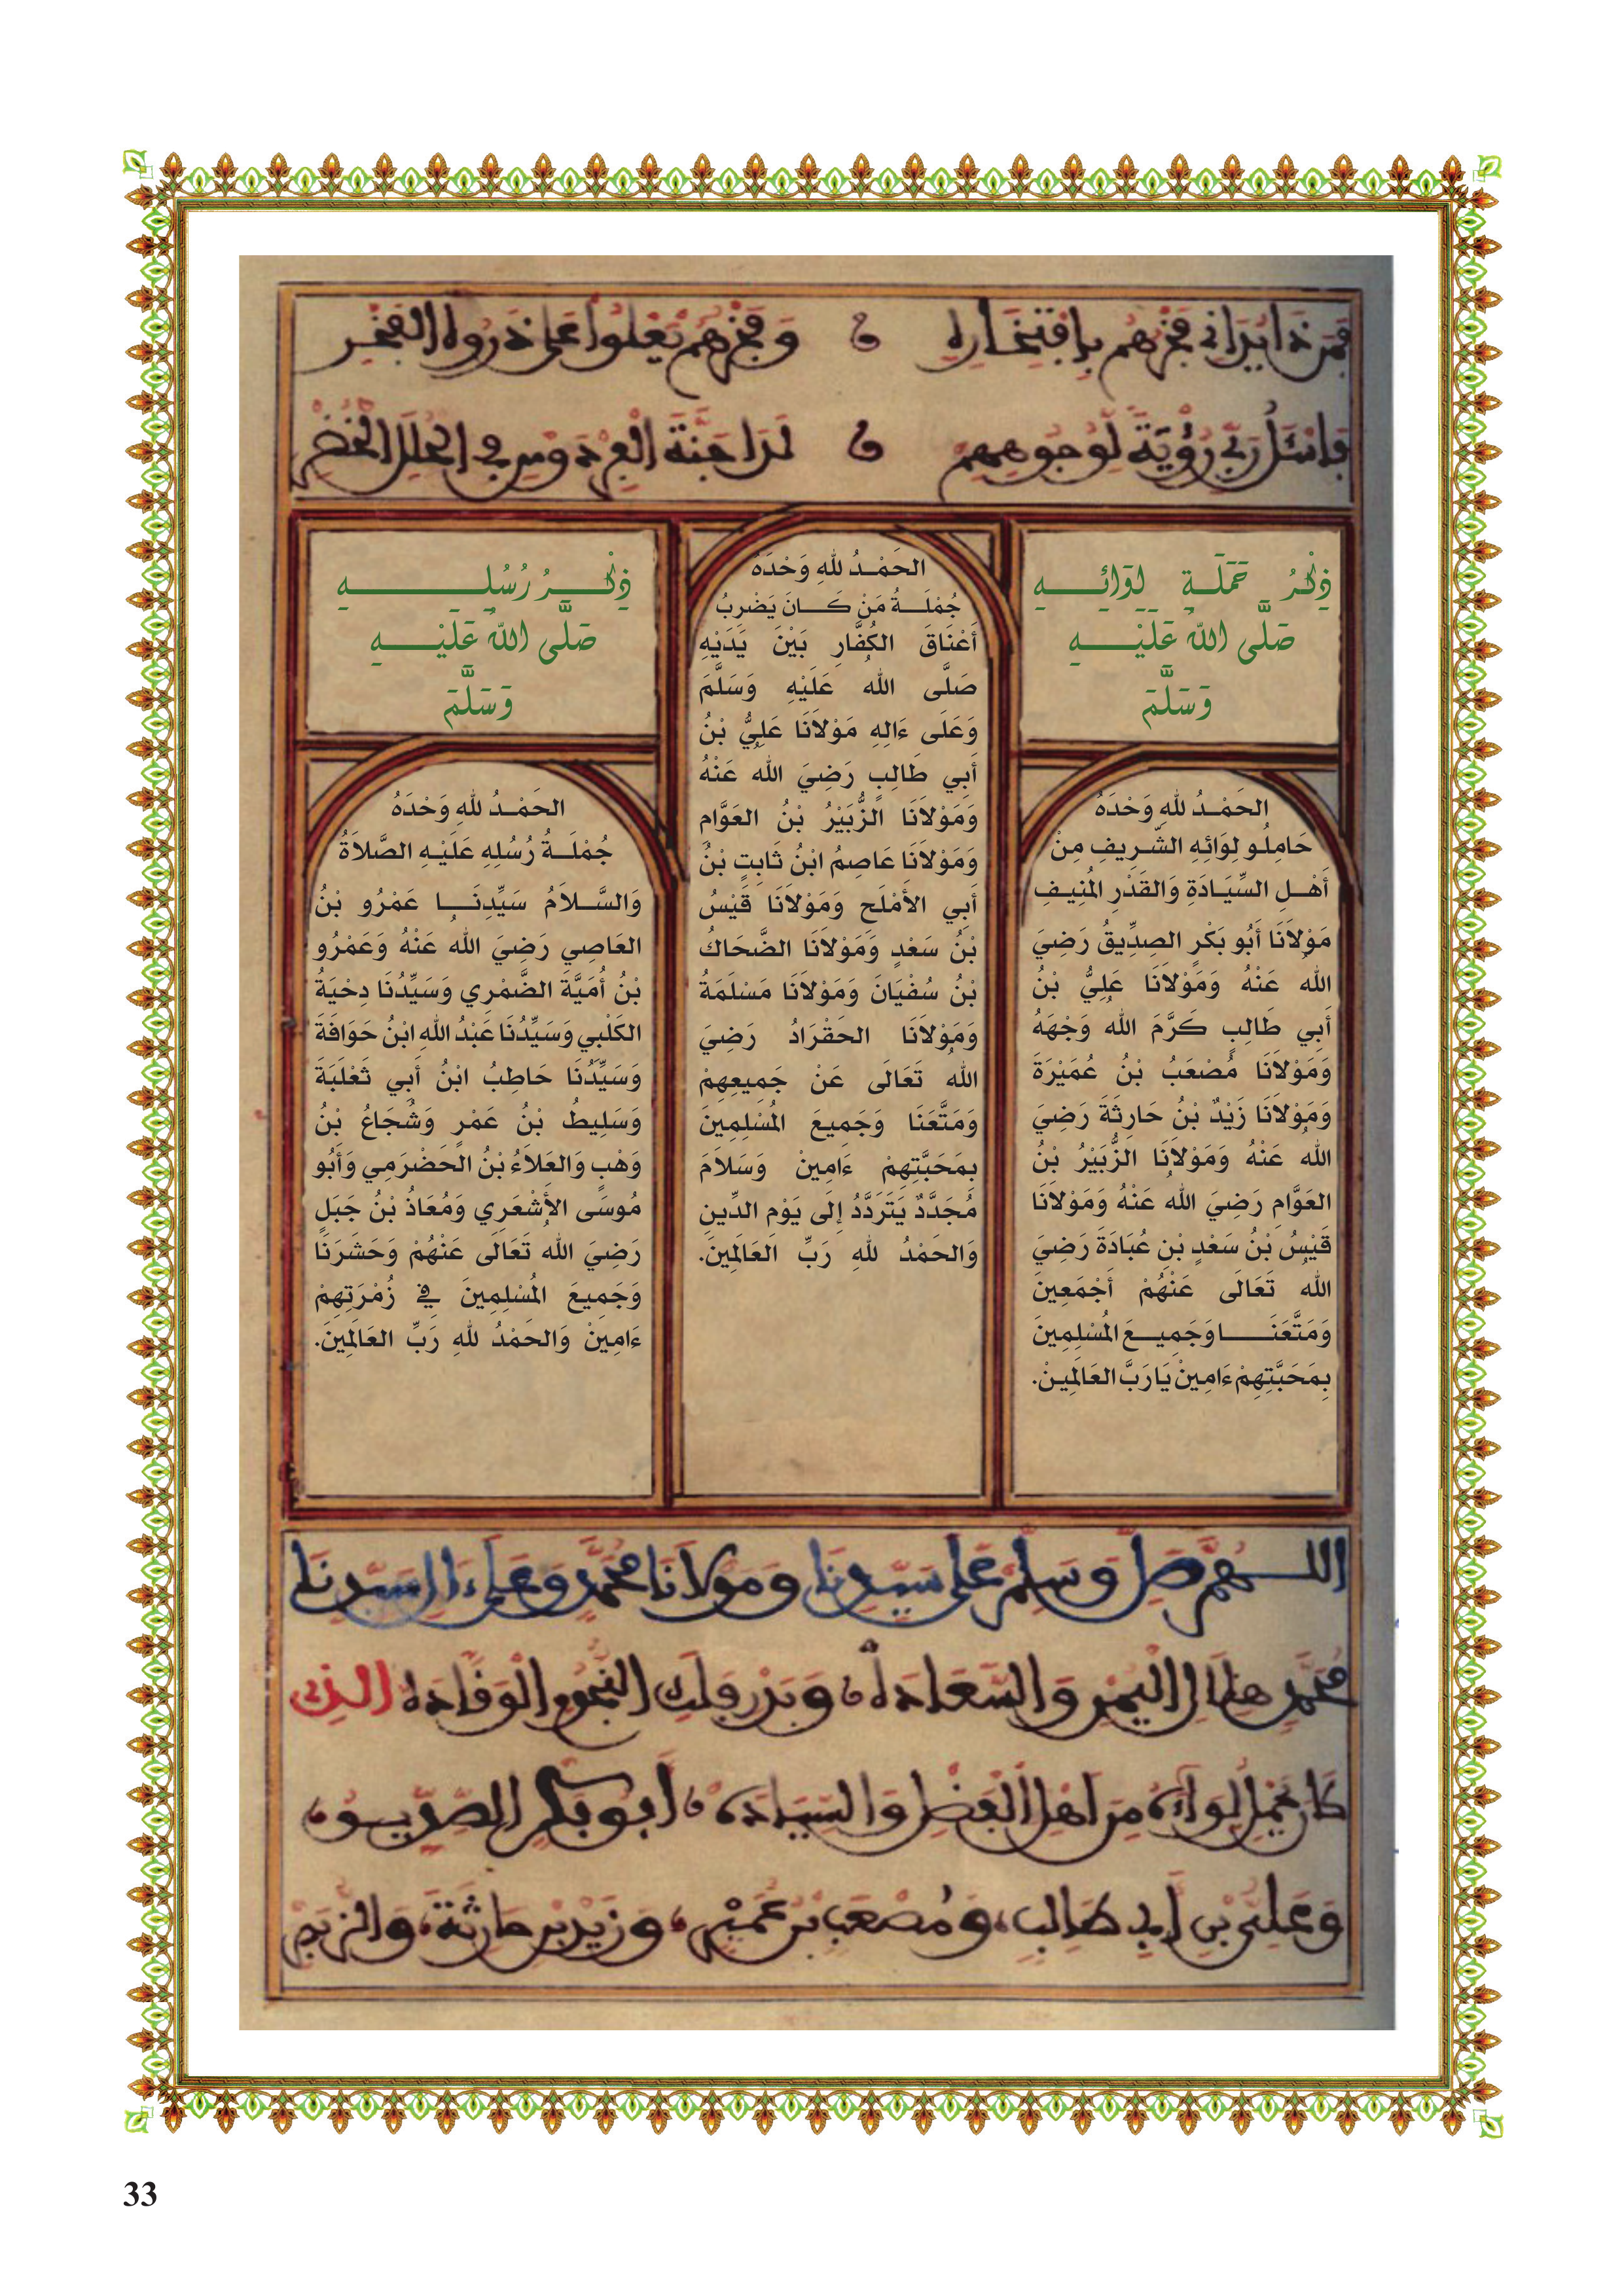 فَمَن ذَا يُدَانِي فَخْرَهُم بِافْتِخَارِهِ وَفَخْرُهُمْ يَعْلُوا عَلَى ذَرْوَةِ الفَخْرِ
فَاسْئَلُ رَبِّي رُؤْيَةً لِّوُجُوهِهِمْ لَدَا جَنَّةِ الفِرْدَوْسِ فِي الحُلَلِ الخُضْرِ
ذِكْرُ حَمَلَةِ لِوَائِهِ
صَلَّى اللهُ عَلَيْهِ
وَسَلَّمَ
الحَمْدُ للهِ وَحْدَهُ
حَامِلُو لِوَائِهِ الشَّرِيفِ مِنْ
أَهْلِ السِّيَادَةِ وَالقَدْرِ المُنِيفِ
مَوْلاَنَا أَبُو بَكْرٍ الصِدِّيقُ رَضِيَ
اللهُ عَنْهُ وَمَوْلاَنَا عَلِيُّ بْنُ
أَبِي طَالِبٍ كَرَّمَ اللهُ وَجْهَهُ
وَمَوْلاَنَا مُصْعَبُ بْنُ عُمَيْرَةَ
وَمَوْلاَنَا زَيْدٌ بْنُ حَارِثَةَ رَضِيَ
اللهُ عَنْهُ وَمَوْلاَنَا الزُّبَيْرُ بْنُ
العَوَّامِ رَضِيَ اللهُ عَنْهُ وَمَوْلاَنَا
قَيْسُ بْنُ سَعْدٍ بْنِ عُبَادَةَ رَضِيَ
اللهُ تَعَالَى عَنْهُمْ أَجْمَعِينَ
وَمَتَّعَنَا وَجَمِيعَ المُسْلِمِينَ
بِمَحَبَّتِهِمْ ءَامِينْ يَا رَبَّ العَالَمِينْ.
الحَمْدُ للهِ وَحْدَهُ
جُمْلَةُ مَنْ كَانَ يَضْرِبُ
أَعْنَاقَ الكُفَّارِ بَيْنَ يَدَيْهِ
صَلَّى اللهُ عَلَيْهِ وَسَلَّمَ
وَعَلَى ءَالِهِ مَوْلاَنَا عَلِيُّ بْنُ
أَبِي طَالِبٍ رَضِيَ اللهُ عَنْهُ
وَمَوْلاَنَا الزُّبَيْرُ بْنُ العَوَّامِ
وَمَوْلاَنَا عَاصِمُ ابْنُ ثَابِتٍ بْنُ
أَبِي الأَمْلَحِ وَمَوْلاَنَا قَيْسُ
بْنُ سَعْدٍ وَمَوْلاَنَا الضَّحَاكُ
بْنُ سُفْيَانَ وَمَوْلاَنَا مَسْلَمَةُ
وَمَوْلاَنَا الحَقْرَادُ رَضِيَ
اللهُ تَعَالَى عَنْ جَمِيعِهِمْ
وَمَتَّعَنَا وَجَمِيعَ المُسْلِمِينَ
بِمَحَبَّتِهِمْ ءَامِينْ وَسَلاَمَ
مُجَدَّدٌ يَتَرَدَّدُ إِلَى يَوْمِ الدِّينِ
وَالحَمْدُ للهِ رَبِّ العَالَمِينَ.
ذِكْرُ رُسُلِهِ
صَلَّى اللهُ عَلَيْهِ
وَسَلَّمَ
الحَمْدُ للهِ وَحْدَهُ
جُمْلَةُ رُسُلِهِ عَلَيْهِ الصَّلاَةُ
وَالسَّلاَمُ سَيِّدِنَا عَمْرُو بْنُ
العَاصِي رَضِيَ اللهُ عَنْهُ وَعَمْرُو
بْنُ أُمَيَّةَ الضَّمْرِي وَسَيِّدُنَا دِحْيَةُ
الكَلْبِي وَسَيِّدُنَا عَبْدُ اللهِ ابْنُ حَوَافَةَ
وَسَيِّدُنَا حَاطِبُ ابْنُ أَبِي ثَعْلَبَةَ
وَسَلِيطُ بْنُ عَمْرٍ وَشُجَاعُ بْنُ
وَهْبٍ وَالعَلاَءُ بْنُ الحَضْرَمِي وَأَبُو
مُوسَى الأَشْعَرِي وَمُعَاذُ بْنُ جَبَلٍ
رَضِيَ اللهُ تَعَالَى عَنْهُمْ وَحَشَرَنَا
وَجَمِيعَ المُسْلِمِينَ فِي زُمْرَتِهِمْ
ءَامِينْ وَالحَمْدُ للهِ رَبِّ العَالَمِينَ.
اللهُمَّ صَلِّ وَسَلِّمْ عَلَى سَيِّدِنَا وَمَوْلاَنَا مُحَمَّدٍ وَعَلَى ءَالِ سَيِّدِنَا
مُحَمَّدٍ هِلاَلِ اليُمْنِ وَالسَّعَادَةِ، وَبَدْرِ فَلَكِ النُّجُومِ الوَقَّادَةِ الذِي
كَانَ يَحْمِلُ لِوَاءَهُ مِنَ اهْلِ الفَضْلِ وَالسِّيَادَةِ، أَبُو بَكْرٍ الصِّدِّيقُ،
وَعَلِيُّ بْنُ أَبِي طَالِبٍ، وَمُصْعَبُ بْنُ عُمَيْرٍ، وَزَيْدُ بْنُ حَارِثَةَ، وَالزُّبَيْرُ
33